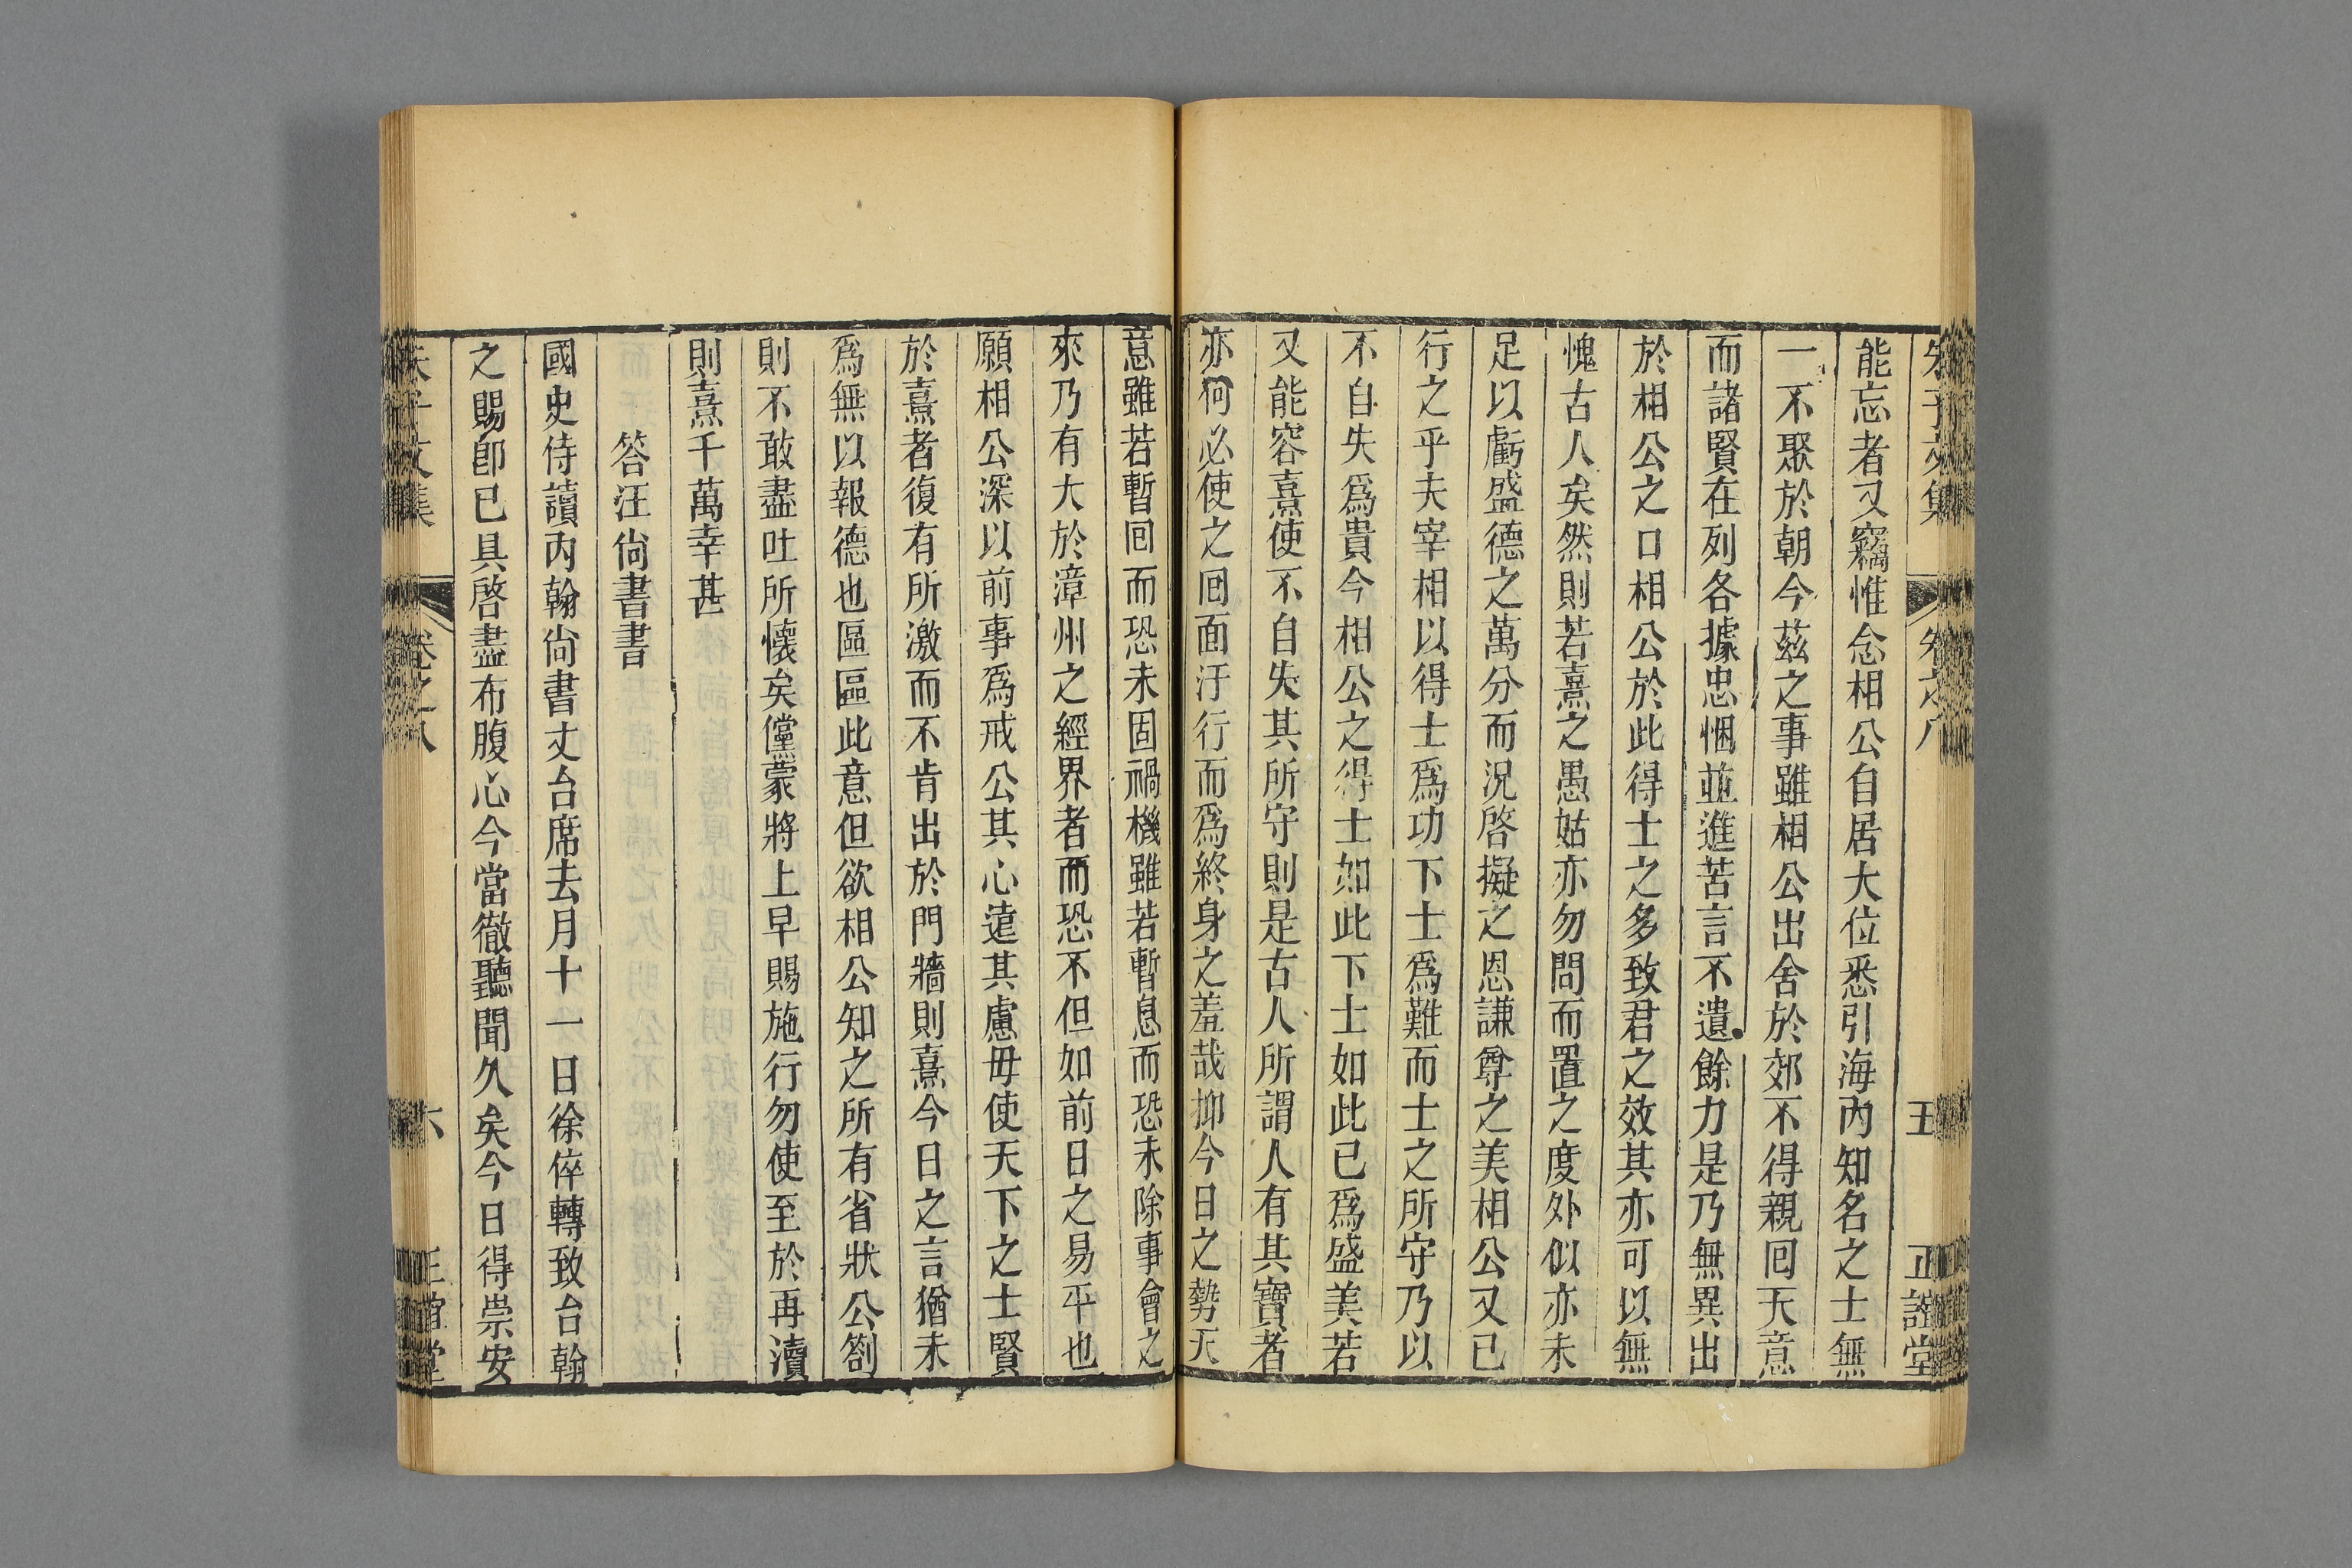 朱子文集 卷之八 五 正誼堂
能忘者又竊惟念相公自居大位悉引海內知名之士無
一不聚於朝今茲之事雖相公出舍於郊不得親囘天意
而諸賢在列各據忠悃並進苦言不遺餘力是乃無異出
於相公之口相公於此得士之多致君之效其亦可以無
愧古人矣然則若熹之愚姑亦勿問而置之度外似亦未
足以虧盛德之萬分而況啓擬之恩謙尊之美相公又已
行之乎夫宰相以得士爲功下士爲難而士之所守乃以
不自失爲貴今相公之得士如此下士如此已爲盛美若
又能容熹使不自失其所守則是古人所謂人有其寶者
亦何必使之囘面汙行而爲終身之羞哉抑今日之勢天
意雖若暫囘而恐未固禍機雖若暫息而恐未除事會之
來乃有大於漳州之經界者而恐不但如前日之易平也
願相公深以前事爲戒公其心遠其慮毋使天下之士賢
於熹者復有所激而不肯出於門牆則熹今日之言猶未
爲無以報德也區區此意但欲相公知之所有省狀公劄
則不敢盡吐所懷矣儻蒙將上早賜施行勿使至於再瀆
則熹千萬幸甚
答汪尙書書
國史侍讀內翰尙書丈台席去月十一日徐倅轉致台翰
之賜卽已具啓盡布腹心今當徹聽聞久矣今日得崇安
朱子文集 卷之八 六 正誼堂